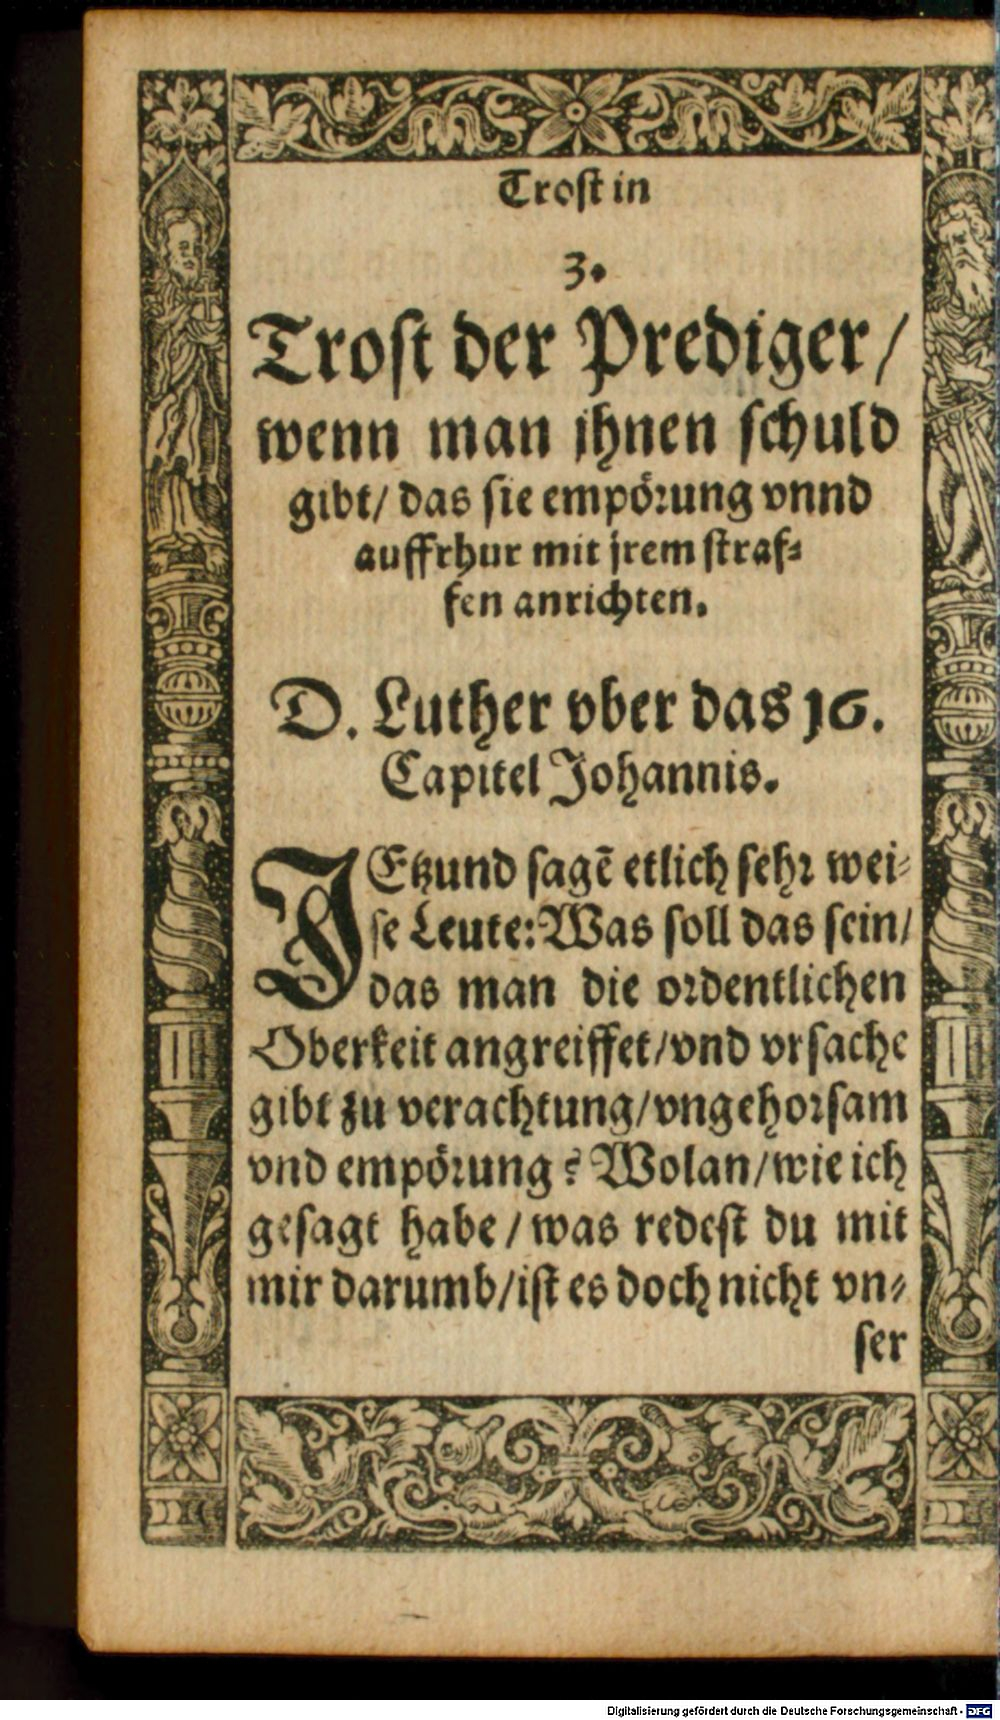 Trost in
3.
Trost der Prediger/
wenn man jhnen schuld
gibt/ das sie empörung vnnd
auffrhur mit jrem straf-
fen anrichten.
D. Luther vber das 16.
Capitel Johannis.
JEtzund sagē etlich sehr wei-
se Leute: Was soll das sein/
das man die ordentlichen
Oberkeit angreiffet/vnd vrsache
gibt zu verachtung/vngehorsam
vnd empörung? Wolan/wie ich
gesagt habe/was redest du mit
mir darumb/ist es doch nicht vn-
ser
Digitalisierung gefördert durch die Deutsche Forschungsgemeinschaft - DFG